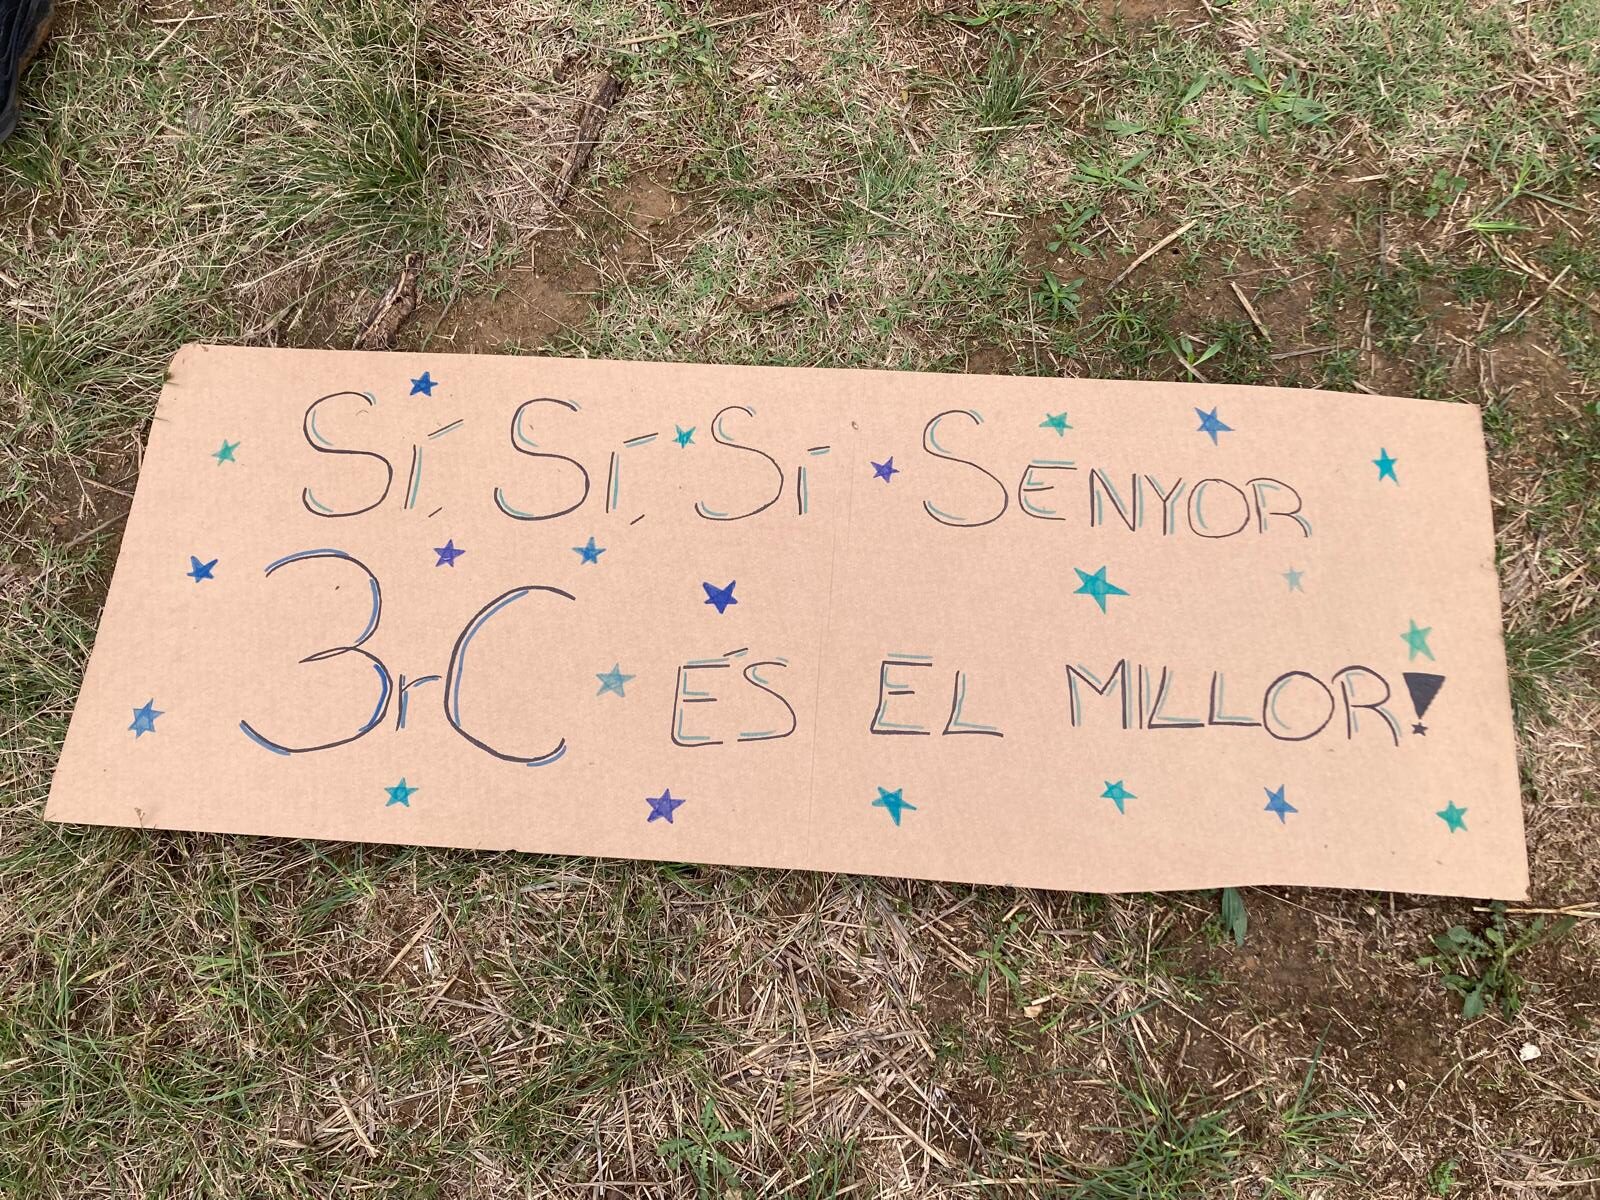 Sí, Sí, Sí SENYOR
3rC ÉS EL MILLOR!